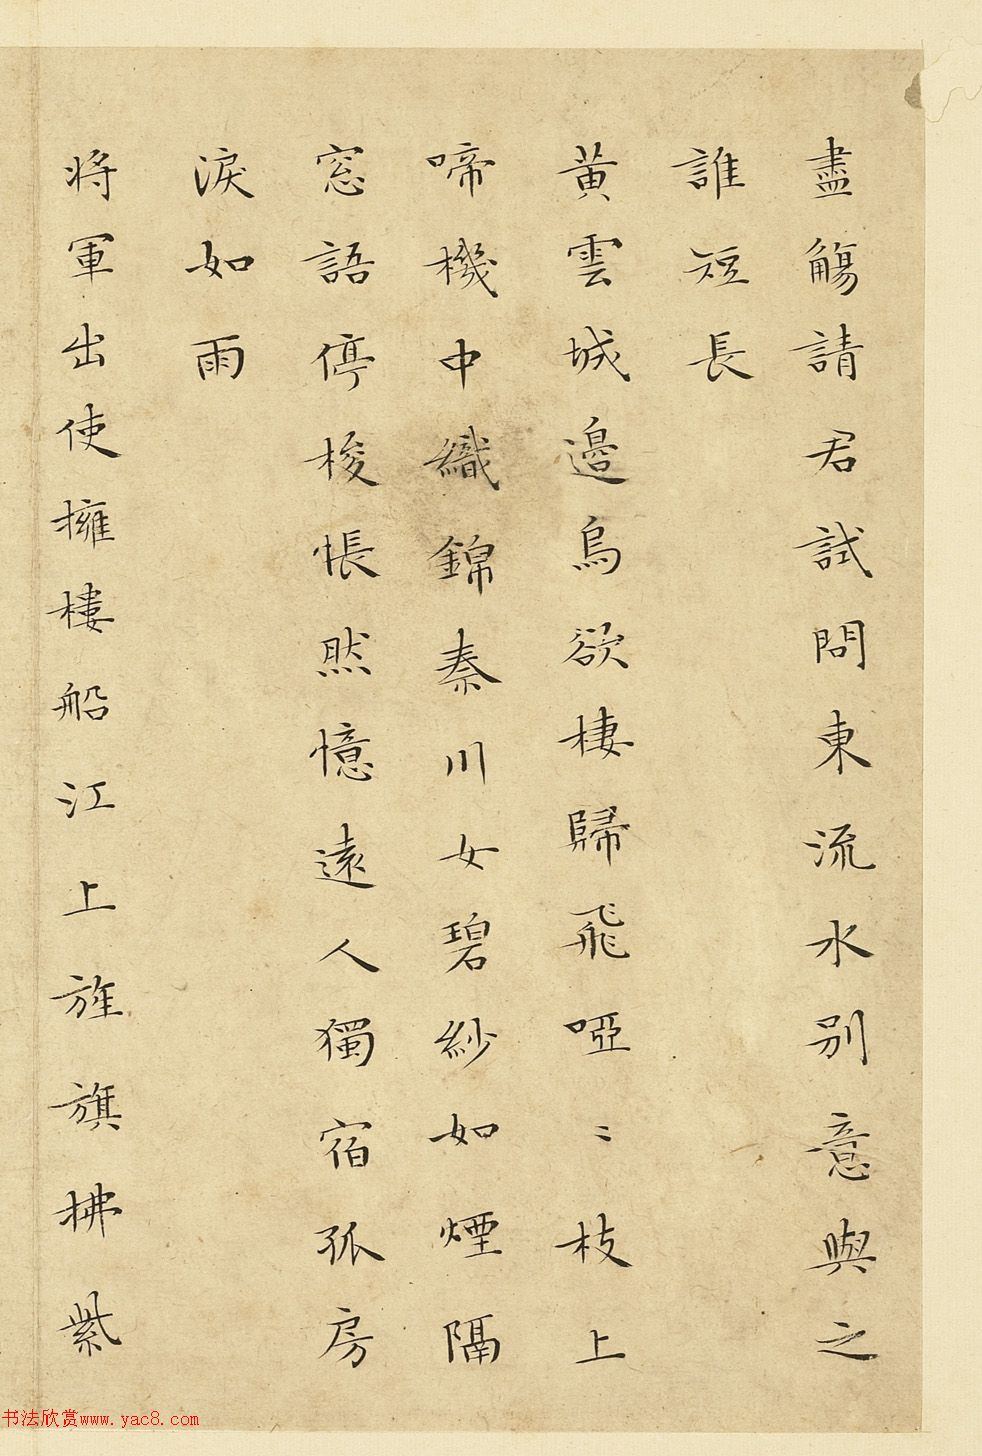 盡觴請君試問東流水別意與之
誰短長
黃雲城邊烏欲棲歸飛啞〻枝上
啼機中織錦秦川女碧紗如煙隔
窓語停梭悵然憶遠人獨宿孤房
淚如雨
将軍出使擁樓船江上旌旗拂紫
书法欣赏www.yac8.com